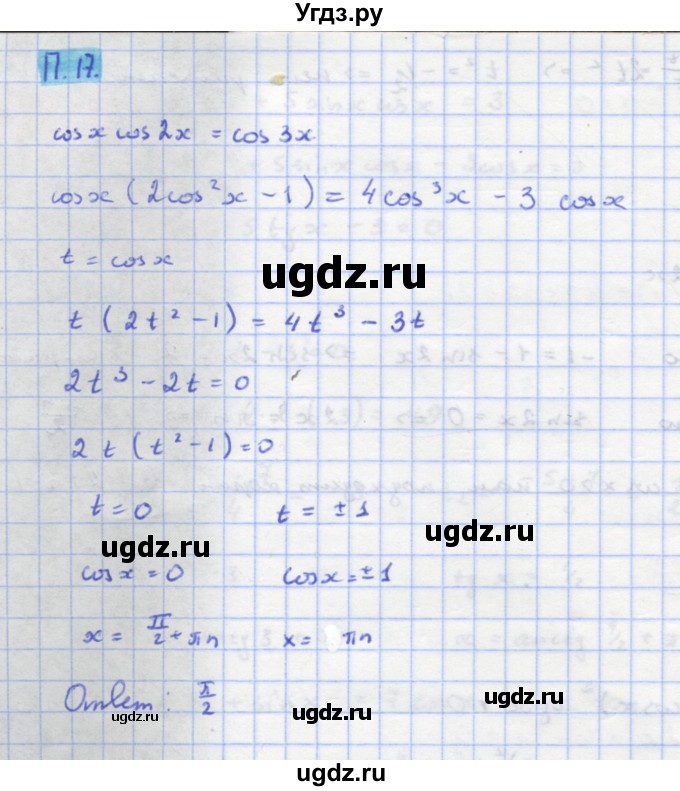 Угдз.ру
П.17.
cos x cos 2x = cos 3x
cos x (2cos²x - 1) = 4cos³x - 3 cos x
t = cos x
ugdz.ru
t (2t² - 1) = 4t³ - 3t
2t³ - 2t = 0
2 t (t² - 1) = 0
t = 0 t = ± 1
ugdz.ru ugdz.ru
cos x = 0 cos x = ± 1
x = π/2 + πn x = πn
Ответ: π/2
ugdz.ru ugdz.ru ugdz.ru
ugdz.ru